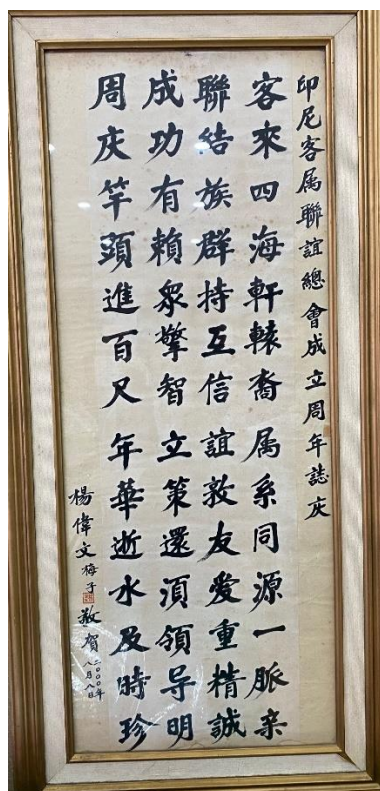 印尼客属聯誼總會成立周年誌庆
客來四海軒轅裔 属系同源一脈亲
聯結族群持互信 誼敦友爱重精誠
成功有賴衆擎智 立策還湏領导明
周庆竿頭進百尺 年華逝水及時珍
楊偉文 梅子 敬賀
二〇〇〇年
八月八日